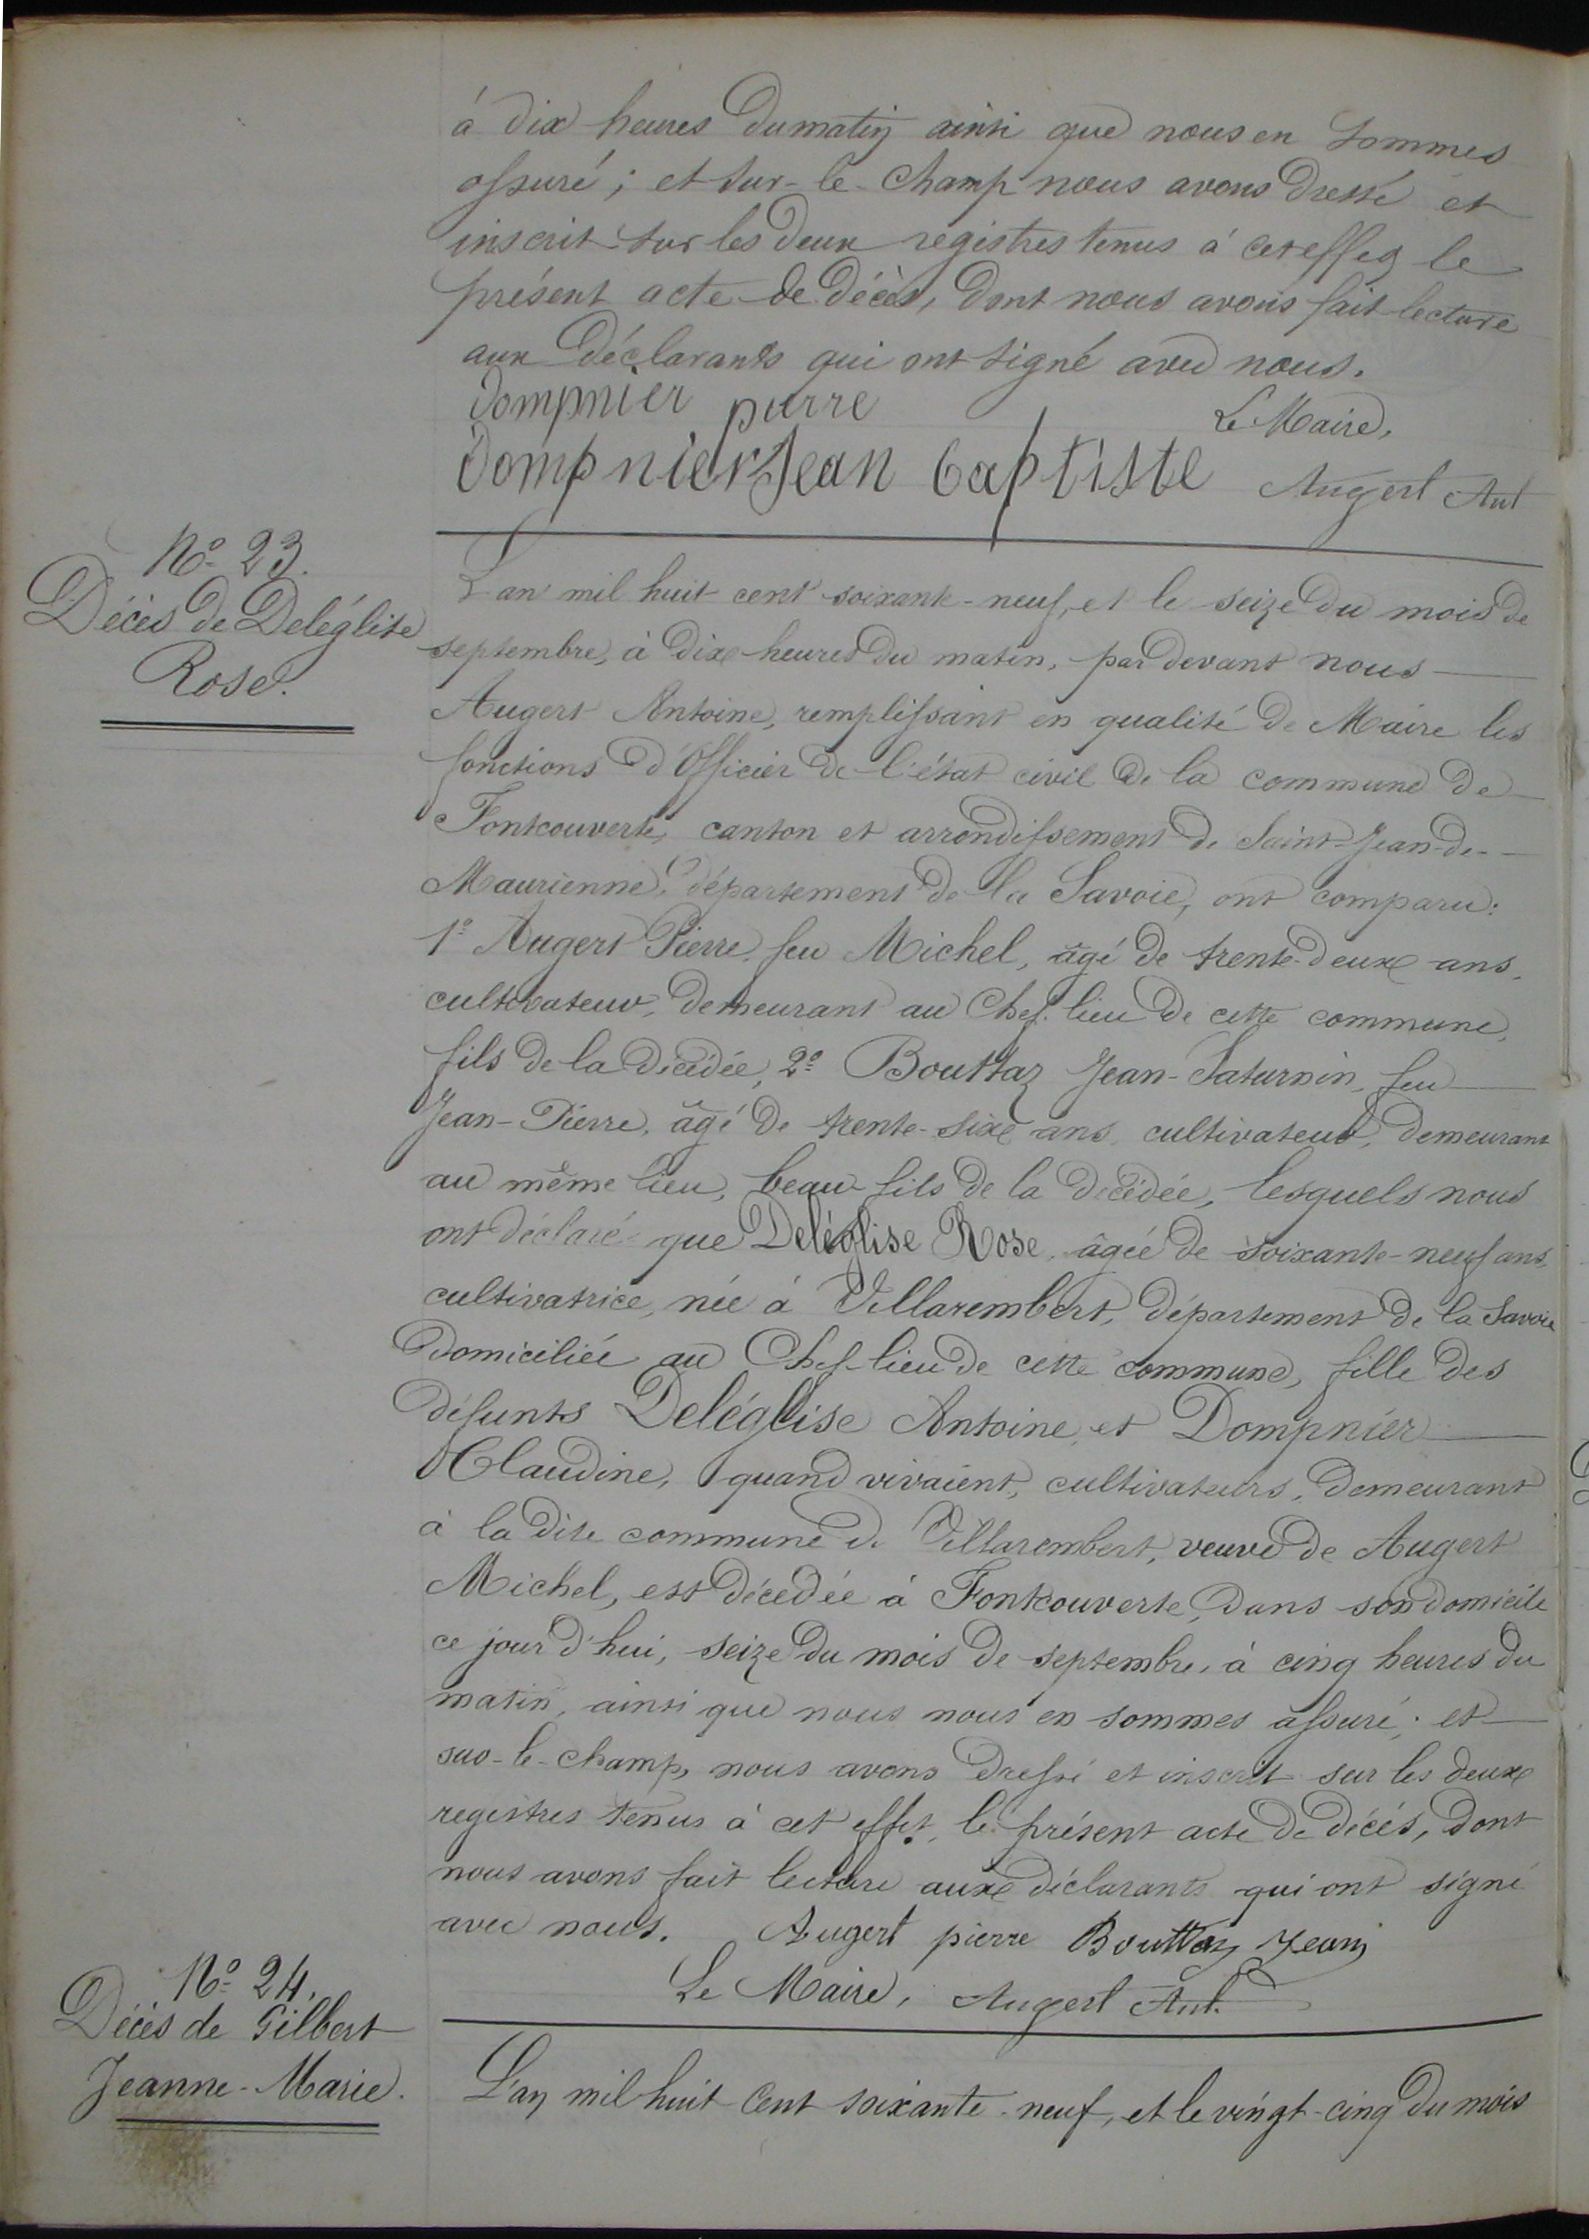 à dix heures du matin ainsi que nous en sommes
assuré ; et sur-le-champ nous avons dressé et
inscrit sur les deux registres tenus à cet effet le
présent acte de décès, dont nous avons fait lecture
aux déclarants qui ont signé avec nous.
dompnier pierre
Le Maire,
dompnier Jean baptiste Augert Ant
N° 23.
Décès de Deléglise
Rose.
L'an mil huit cent soixante-neuf, et le seize du mois de
septembre, à dix heures du matin, par devant nous
Augert Antoine, remplissant en qualité de Maire les
fonctions d'Officier de l'état civil de la commune de
Fontcouverte, canton et arrondissement de Saint-Jean-de-
Maurienne, département de la Savoie, ont comparu :
1° Augert Pierre, feu Michel, âgé de trente-deux ans,
cultivateur, demeurant au Chef-lieu de cette commune,
fils de la décédée, 2° Bouttaz Jean-Saturnin, feu
Jean-Pierre, âgé de trente-six ans, cultivateur, demeurant
au même lieu, beau-fils de la décédée, lesquels nous
ont déclaré que Deléglise Rose, âgée de soixante-neuf ans,
cultivatrice, née à Villarembert, département de la Savoie
domiciliée au Chef-lieu de cette commune, fille des
défunts Deléglise Antoine et Dompnier
Claudine, quand vivaient, cultivateurs, demeurant
à la dite commune de Villarembert, veuve de Augert
Michel, est décédée à Fontcouverte, dans son domicile
ce jour d'hui, seize du mois de septembre, à cinq heures du
matin, ainsi que nous nous en sommes assuré ; et
sur-le-champ, nous avons dressé et inscrit sur les deux
registres tenus à cet effet, le présent acte de décès, dont
nous avons fait lecture aux déclarants qui ont signé
avec nous. Augert pierre Bouttaz Jean
Le Maire, Augert Ant.
N° 24.
Décès de Gilbert
Jeanne-Marie.
L'an mil huit cent soixante-neuf, et le vingt-cinq du mois